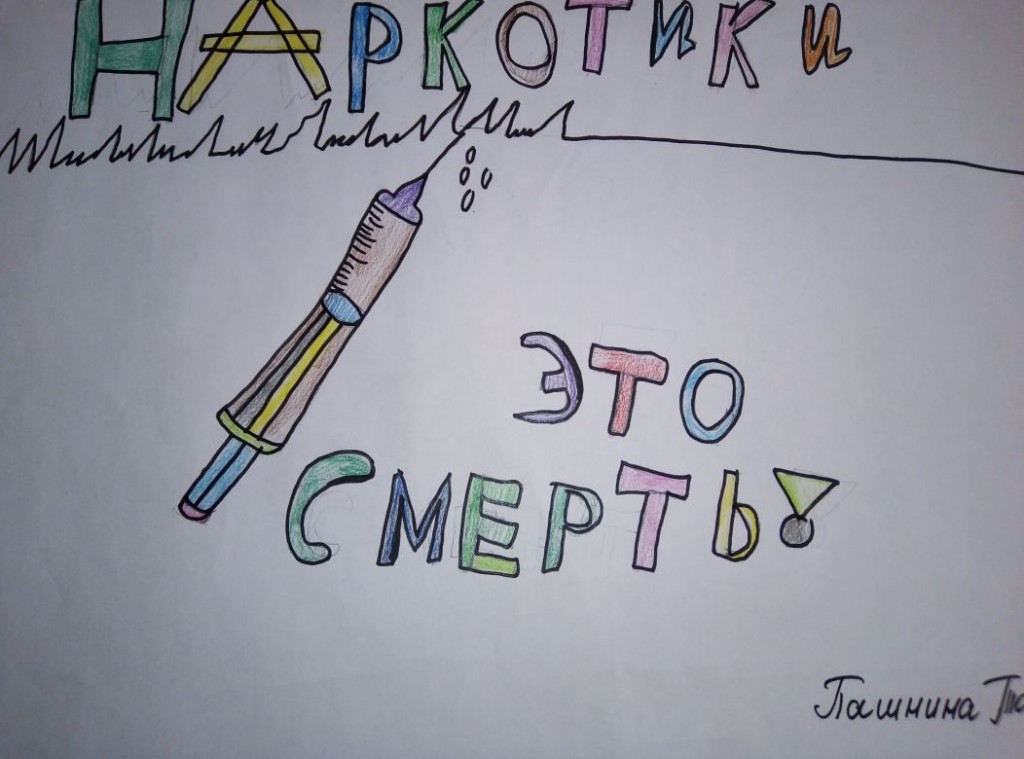 НАРКОТИКИ
ЭТО
СМЕРТЬ!
Пашнина